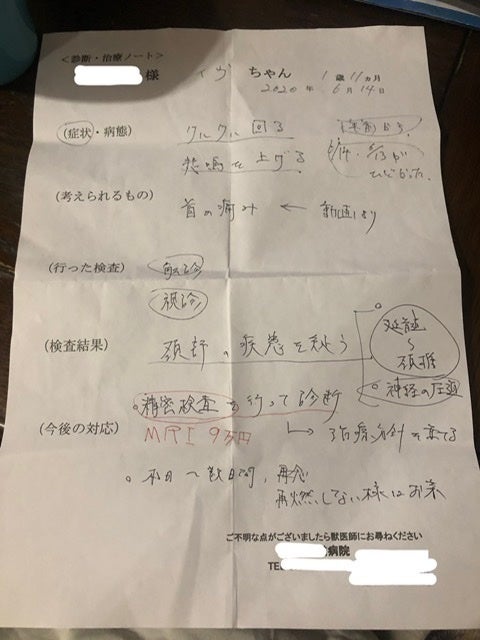 <診断・治療ノート>
様 ちゃん 1歳11ヵ月
2020年 6月14日
(症状・病態) クルクル回る
悲鳴を上げる
6/13が
ひどかった。
(考えられるもの) 首の痛み ← 動画より
(行った検査) 触診
視診
(検査結果) 頚部の疾患を疑う
延髄
〜
頚椎
神経の圧迫
○精密検査を行って診断
(今後の対応) MRI 9万円 → 治療方針を立てる
○本日〜数日間、再念
再燃しない様にお薬
ご不明な点がございましたら獣医師にお尋ねください
病院
TEL